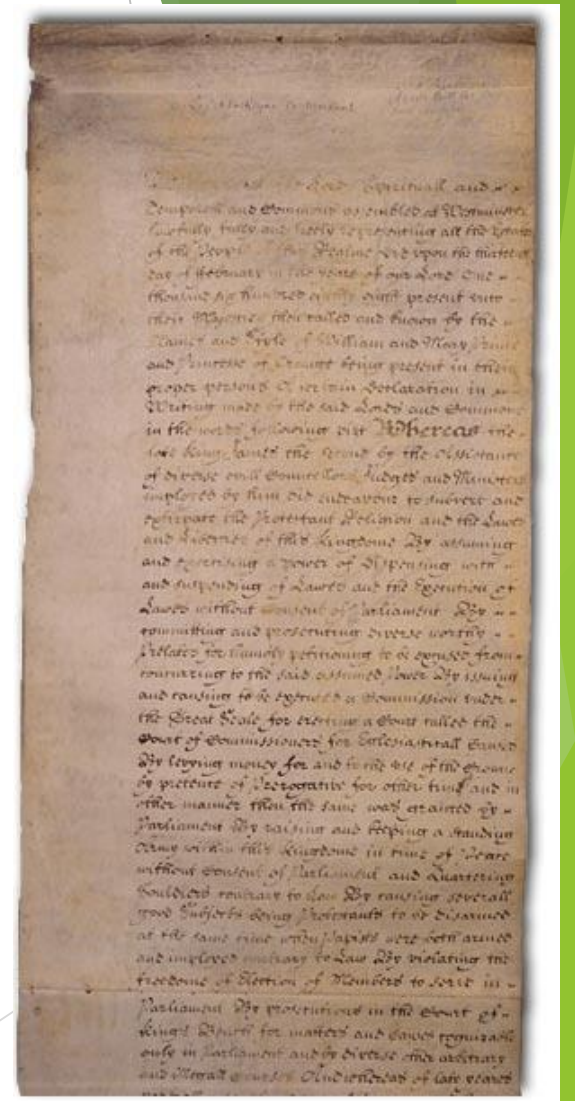 the Lords Spirituall and
Temporall and Commons assembled at Westminster
lawfully fully and freely representing all the Estates
of the People of this Realme did upon the thirteenth
day of February in the yeare of our Lord One
thousand six hundred eighty eight present unto
their Majesties then called and known by the
Names and Stile of William and Mary Prince
and Princesse of Orange being present in their
proper persons A certain Declaration in
Writing made by the said Lords and Commons
in the words following viz Whereas the
late King James the Second by the Assistance
of diverse evill Councellors Judges and Ministers
imployed by him did endeavour to subvert and
extirpate the Protestant Religion and the Lawes
and Liberties of this Kingdome By assuming
and exercising a power of Dispensing with
and suspending of Lawes and the Execution of
Lawes without Consent of Parliament By
committing and prosecuting diverse worthy
Prelates for humbly petitioning to be excused from
concurring to the said assumed Power By issuing
and causing to be executed a Commission under
the Great Seale for erecting a Court called the
Court of Commissioners for Ecclesiasticall Causes
By levying money for and to the use of the Crowne
by pretence of Prerogative for other time and in
other manner then the same was granted by
Parliament By raising and keeping a standing
Army within this Kingdome in time of Peace
without Consent of Parliament and Quartering
Souldiers contrary to Law By causing severall
good Subjects being Protestants to be disarmed
at the same time when Papists were both armed
and imployed contrary to Law By violating the
freedome of Election of Members to serve in
Parliament By prosecutions in the Court of
Kings Bench for matters and Causes cognizable
only in Parliament and by diverse other arbitrary
and illegall Courses And whereas of late yeares